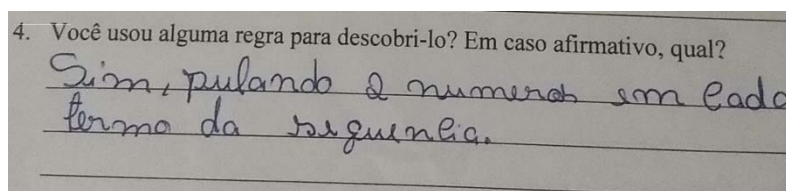 4. Você usou alguma regra para descobri-lo? Em caso afirmativo, qual?
Sim, pulando 2 numeros em cada
termo da sequencia.